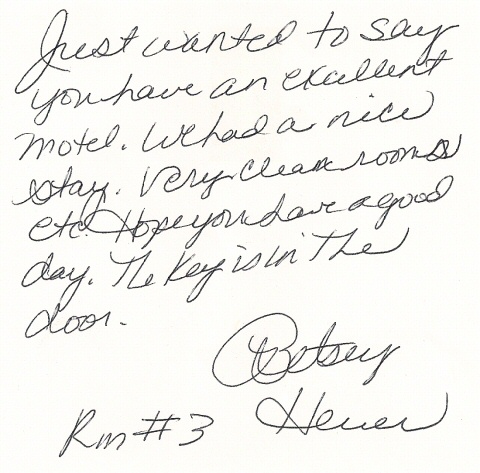 Just wanted to say
you have an excellent
motel. We had a nice
stay. Very clean rooms
etc. Hope you have a good
day. The key is in the
door.
Betsey
Rm #3